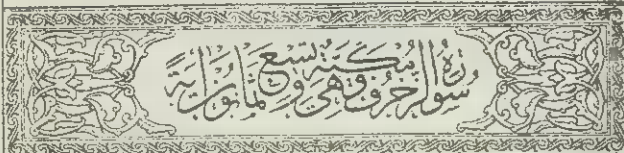 سورة الزخرف مكية وهي تسع وثمانون آية